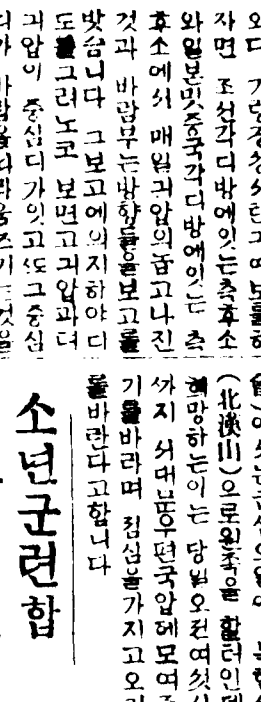 자면 조선각디방에잇는측후소
와일본및중국각디방에잇는 측
후소에서 매일긔압의놉고나진
것과 바람부는방향들을보고를
밧슴니다 그보고에의지하야디
도를그려노코 보면고긔압과뎌
긔압이 중심디가잇고ᄯᅩ그중심
(北漢山)으로원족을 할터인데
희망하는이는 당일오전여섯시
ᄭᅡ지 서대문우편국압헤모여주
기를바라며 뎜심을가지고오기
를바란다고합니다
소년군련합